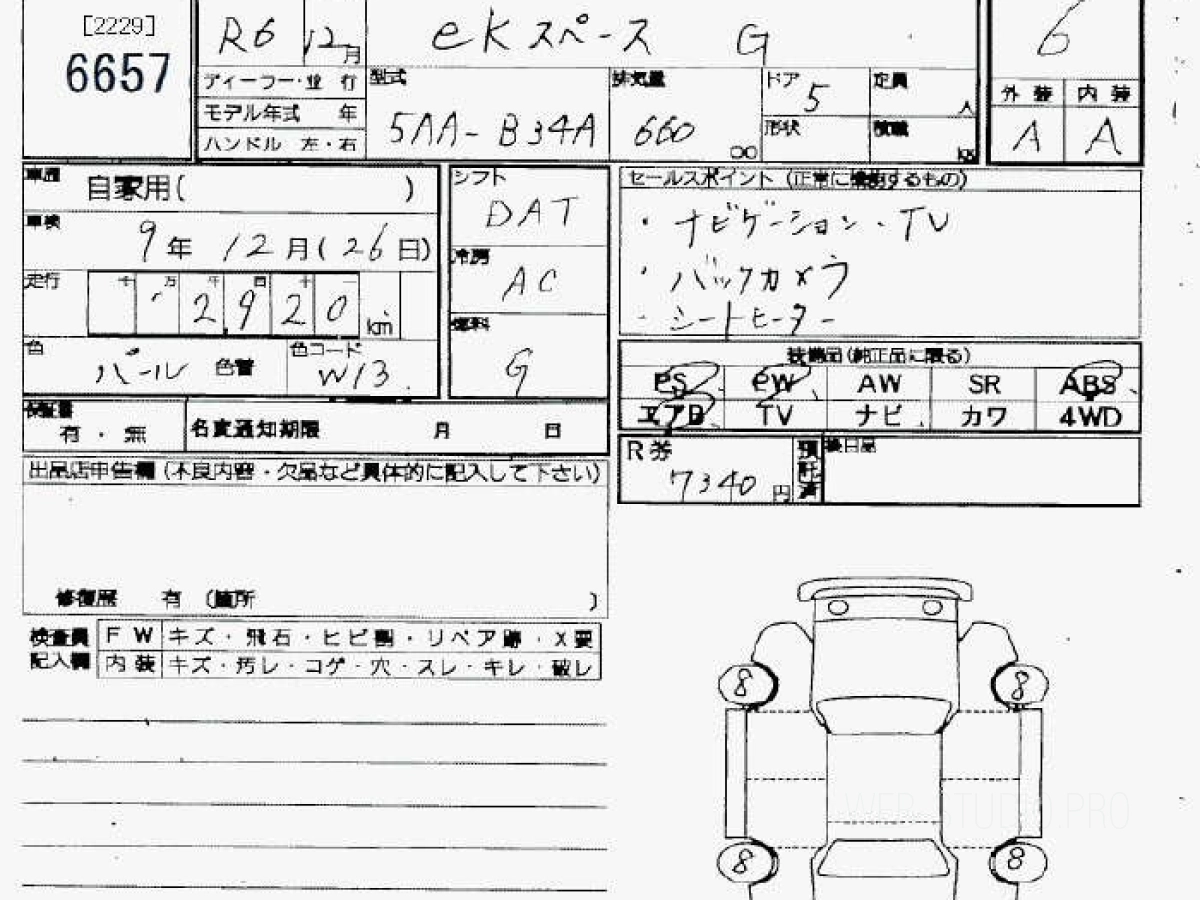 [2229]
6657
R6 12月
eKスペース G
6
ディーラー・並行
モデル年式 年
ハンドル 左・右
型式
5AA-B34A
排気量
660
cc
ドア
5
形状
定員
人
積載
kg
外装 内装
A A
車歴
自家用( )
車検
9年 12月(26日)
走行
十 万 千 百 十 一
2920 km
色
パール 色替
色コード
W13
シフト
DAT
冷房
AC
燃料
G
セールスポイント (正常に機動するもの)
・ナビゲーション・TV
・バックカメラ
・シートヒーター
装備品(純正品に限る)
PS PW AW SR ABS
エアB TV ナビ カワ 4WD
保証書
有・無
名変通知期限 月 日
R券
7340円
預託済
後日品
出品店申告欄(不良内容・欠品など具体的に記入して下さい)
修復歴 有 (箇所 )
検査員
記入欄
FW キズ・飛石・ヒビ割・リペア跡・X要
内装 キズ・汚レ・コゲ・穴・スレ・キレ・破レ
8 8
WEB-STUDIO.PRO
8 8